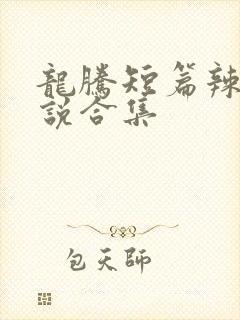 龍騰短篇辣
說合集
包天師